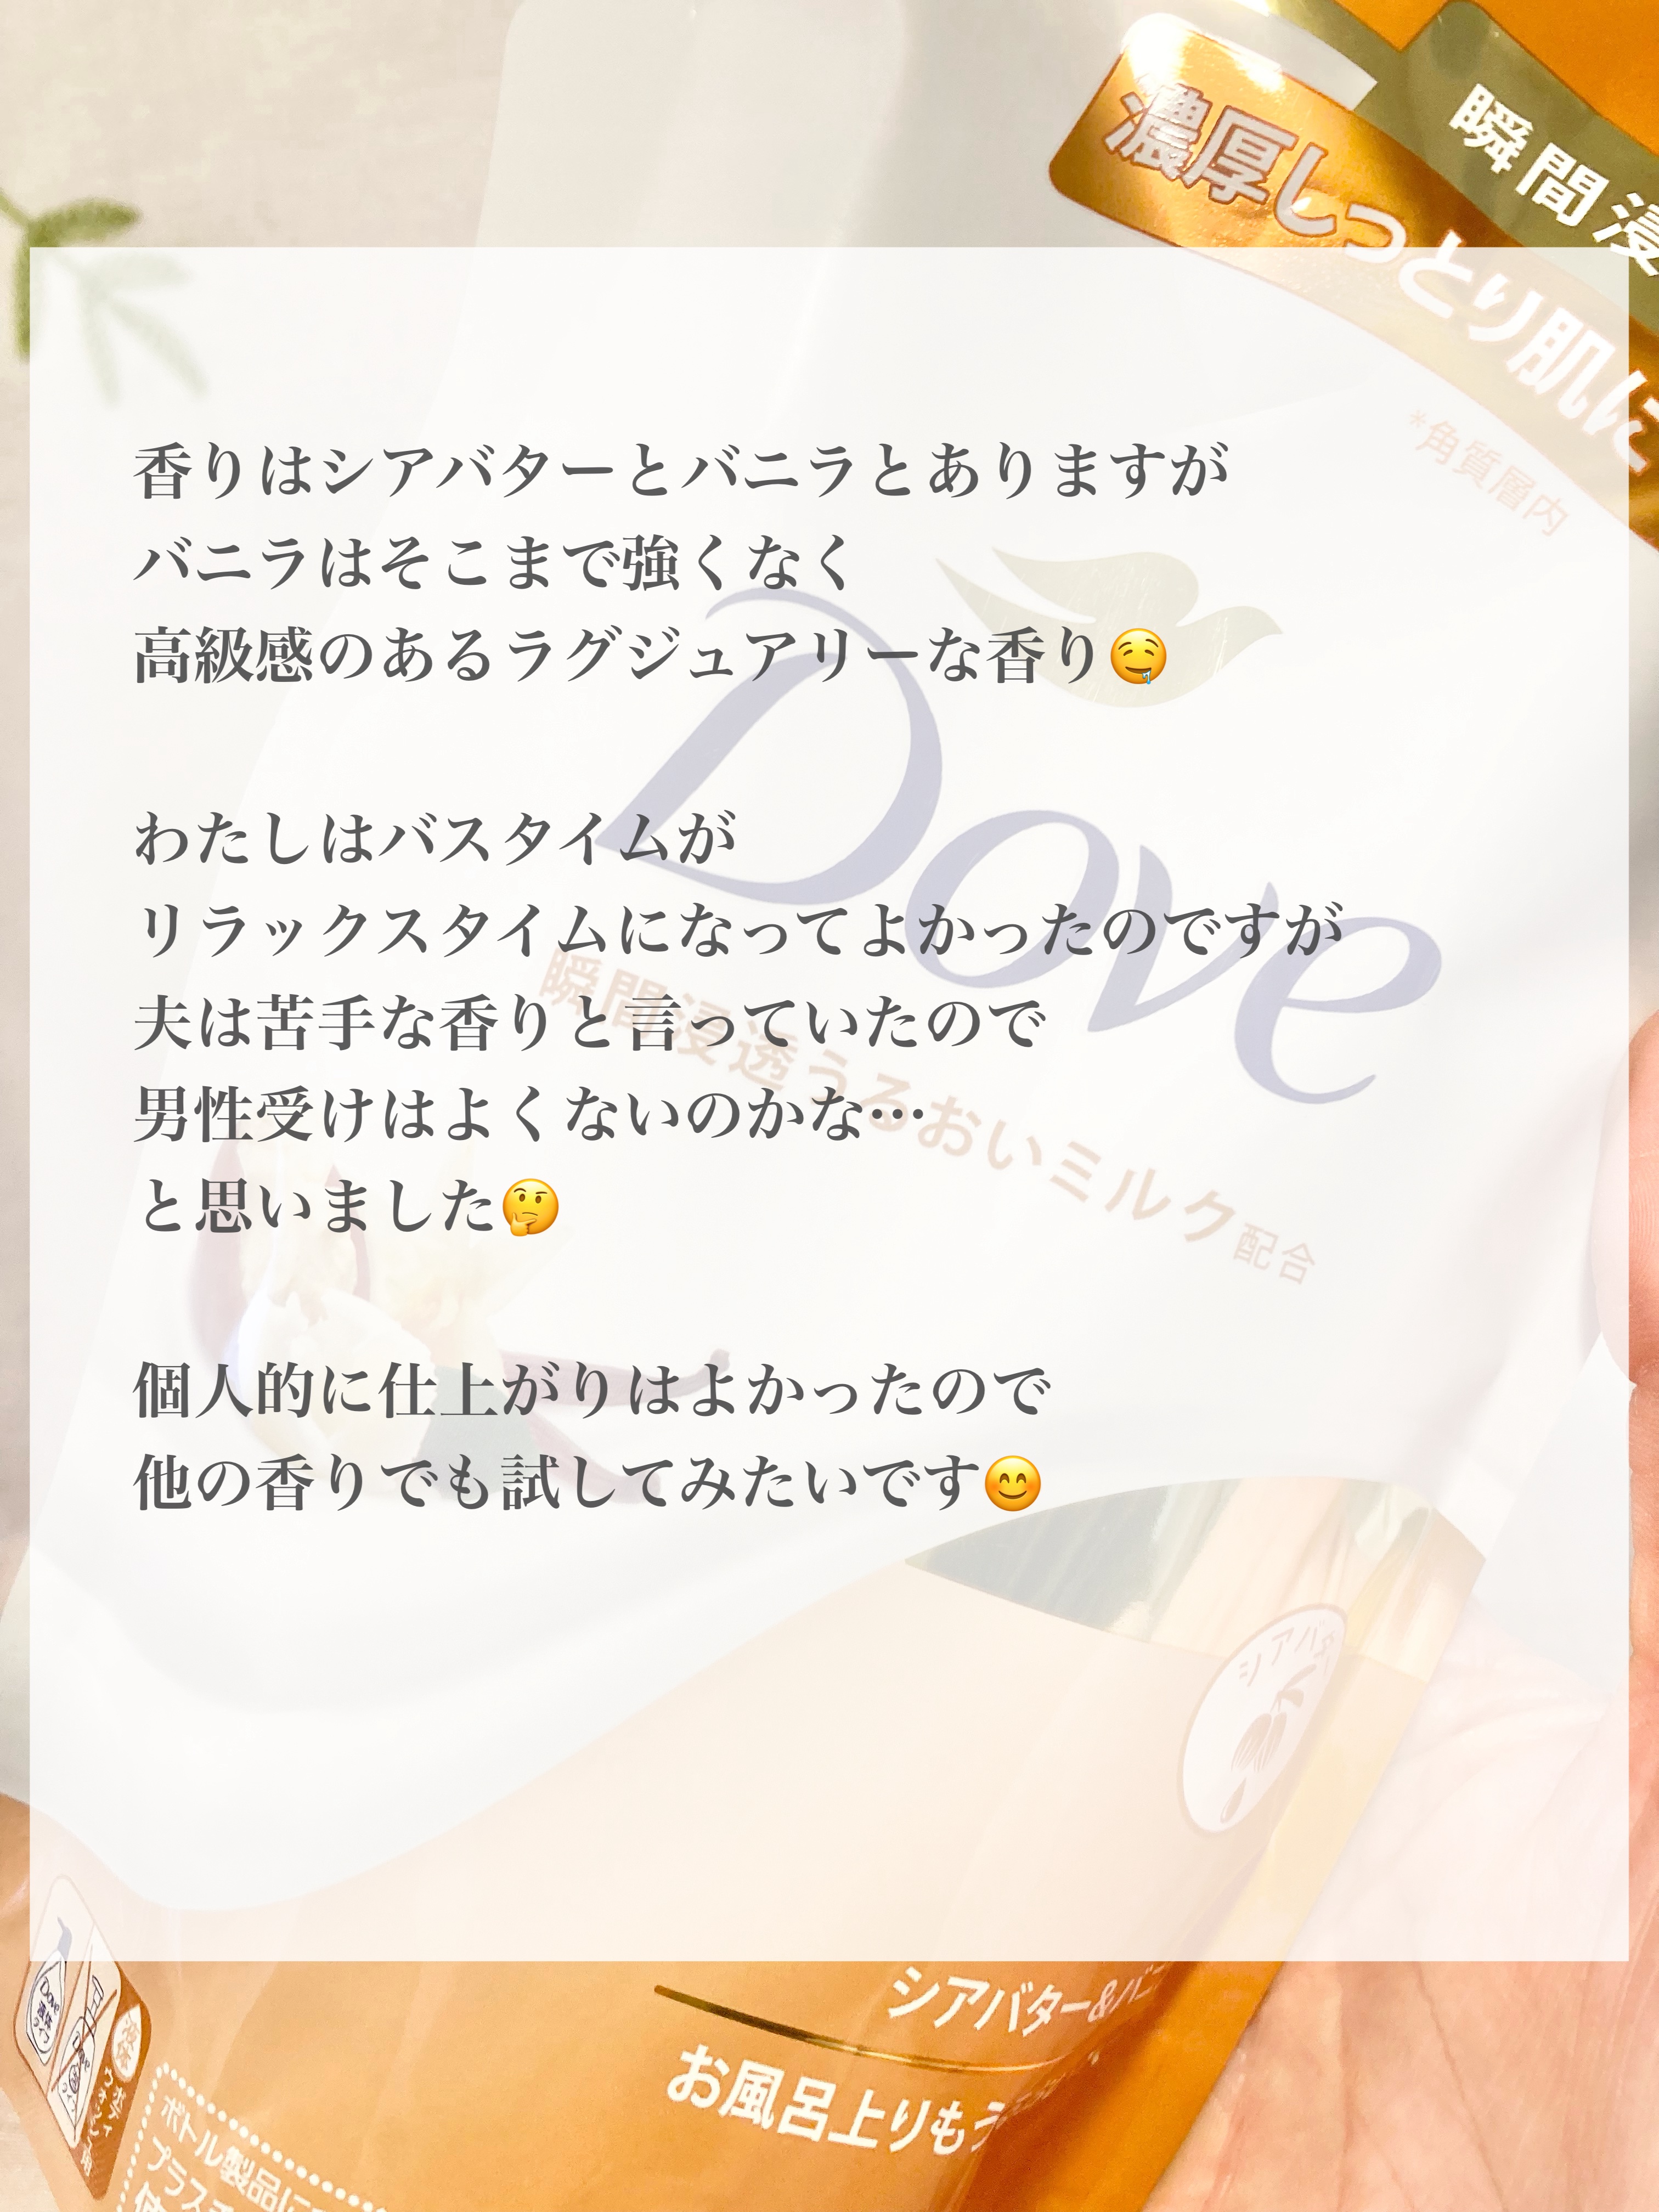 瞬間浸
濃厚しっとり肌に
*角質層内
香りはシアバターとバニラとありますが
バニラはそこまで強くなく
高級感のあるラグジュアリーな香り🤤
わたしはバスタイムが
リラックスタイムになってよかったのですが
夫は苦手な香りと言っていたので
男性受けはよくないのかな…
と思いました🤔
個人的に仕上がりはよかったので
他の香りでも試してみたいです😊
Dove
瞬間浸透うるおいミルク配合
シアバタ
シアバター&バニ
お風呂上りもう
Dove
液体
タイプ
液体
ボディ
ウォッシュ用
ボトル製品に
プラスチ